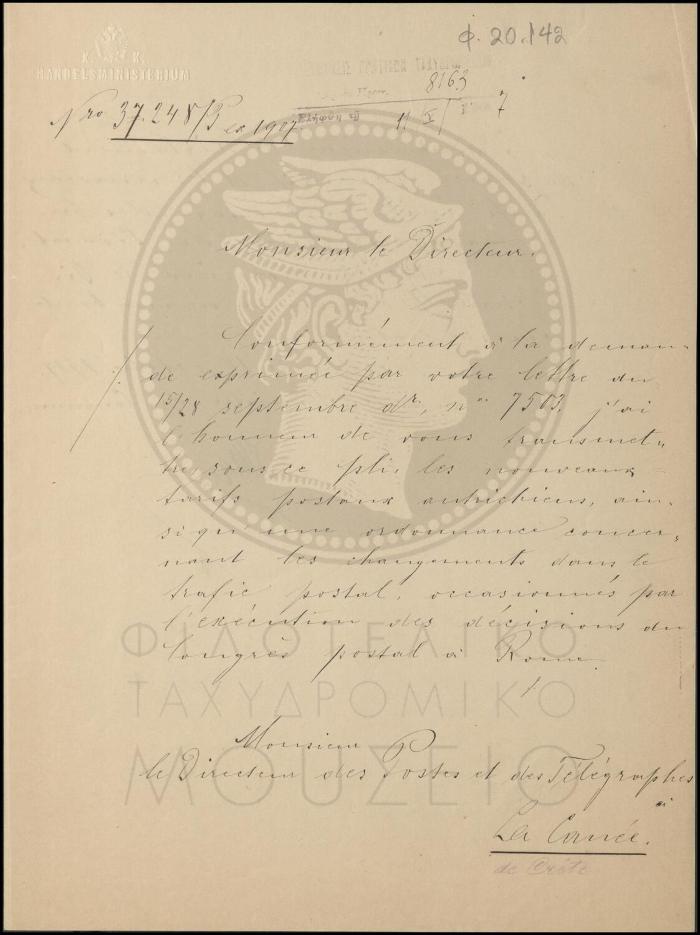 Φ. 20.142
K. K.
HANDELSMINISTERIUM
8163
Nro 37.248/P ex 1907.
11 X 7
Monsieur le Directeur.
Conformément à la deman-
de exprimée par vôtre lettre du
15/28 septembre dr., no. 7503, j'ai
l'honneur de vous transmet-
tre, sous ce pli, les nouveaux
tarifs postaux autrichiens, ain-
si qu'une ordonnance concer-
nant les changements dans le
trafic postal, occasionnés par
l'exécution des décisions du
Congrès postal à Rome.
ΦΙΛΟΤΕΛΙΚΟ
ΤΑΧΥΔΡΟΜΙΚΟ
ΜΟΥΣΕΙΟ
Monsieur
le Directeur des Postes et des Télégraphes
à
La Canée.
de Crète